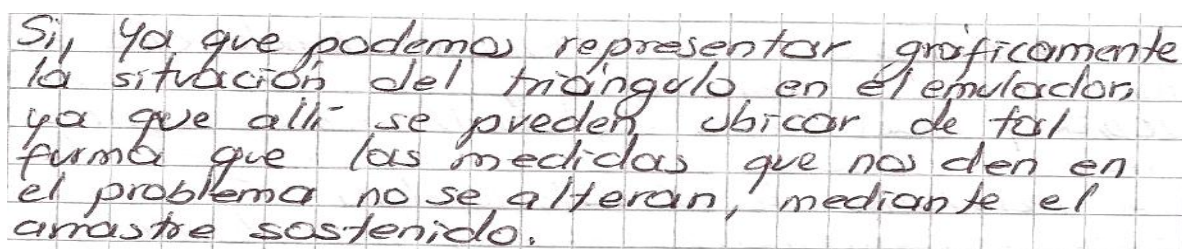 Si, ya que podemos representar gráficamente
la situación del triángulo en el emulador,
ya que allí se pueden ubicar de tal
forma que las medidas que nos den en
el problema no se alteran, mediante el
arrastre sostenido.